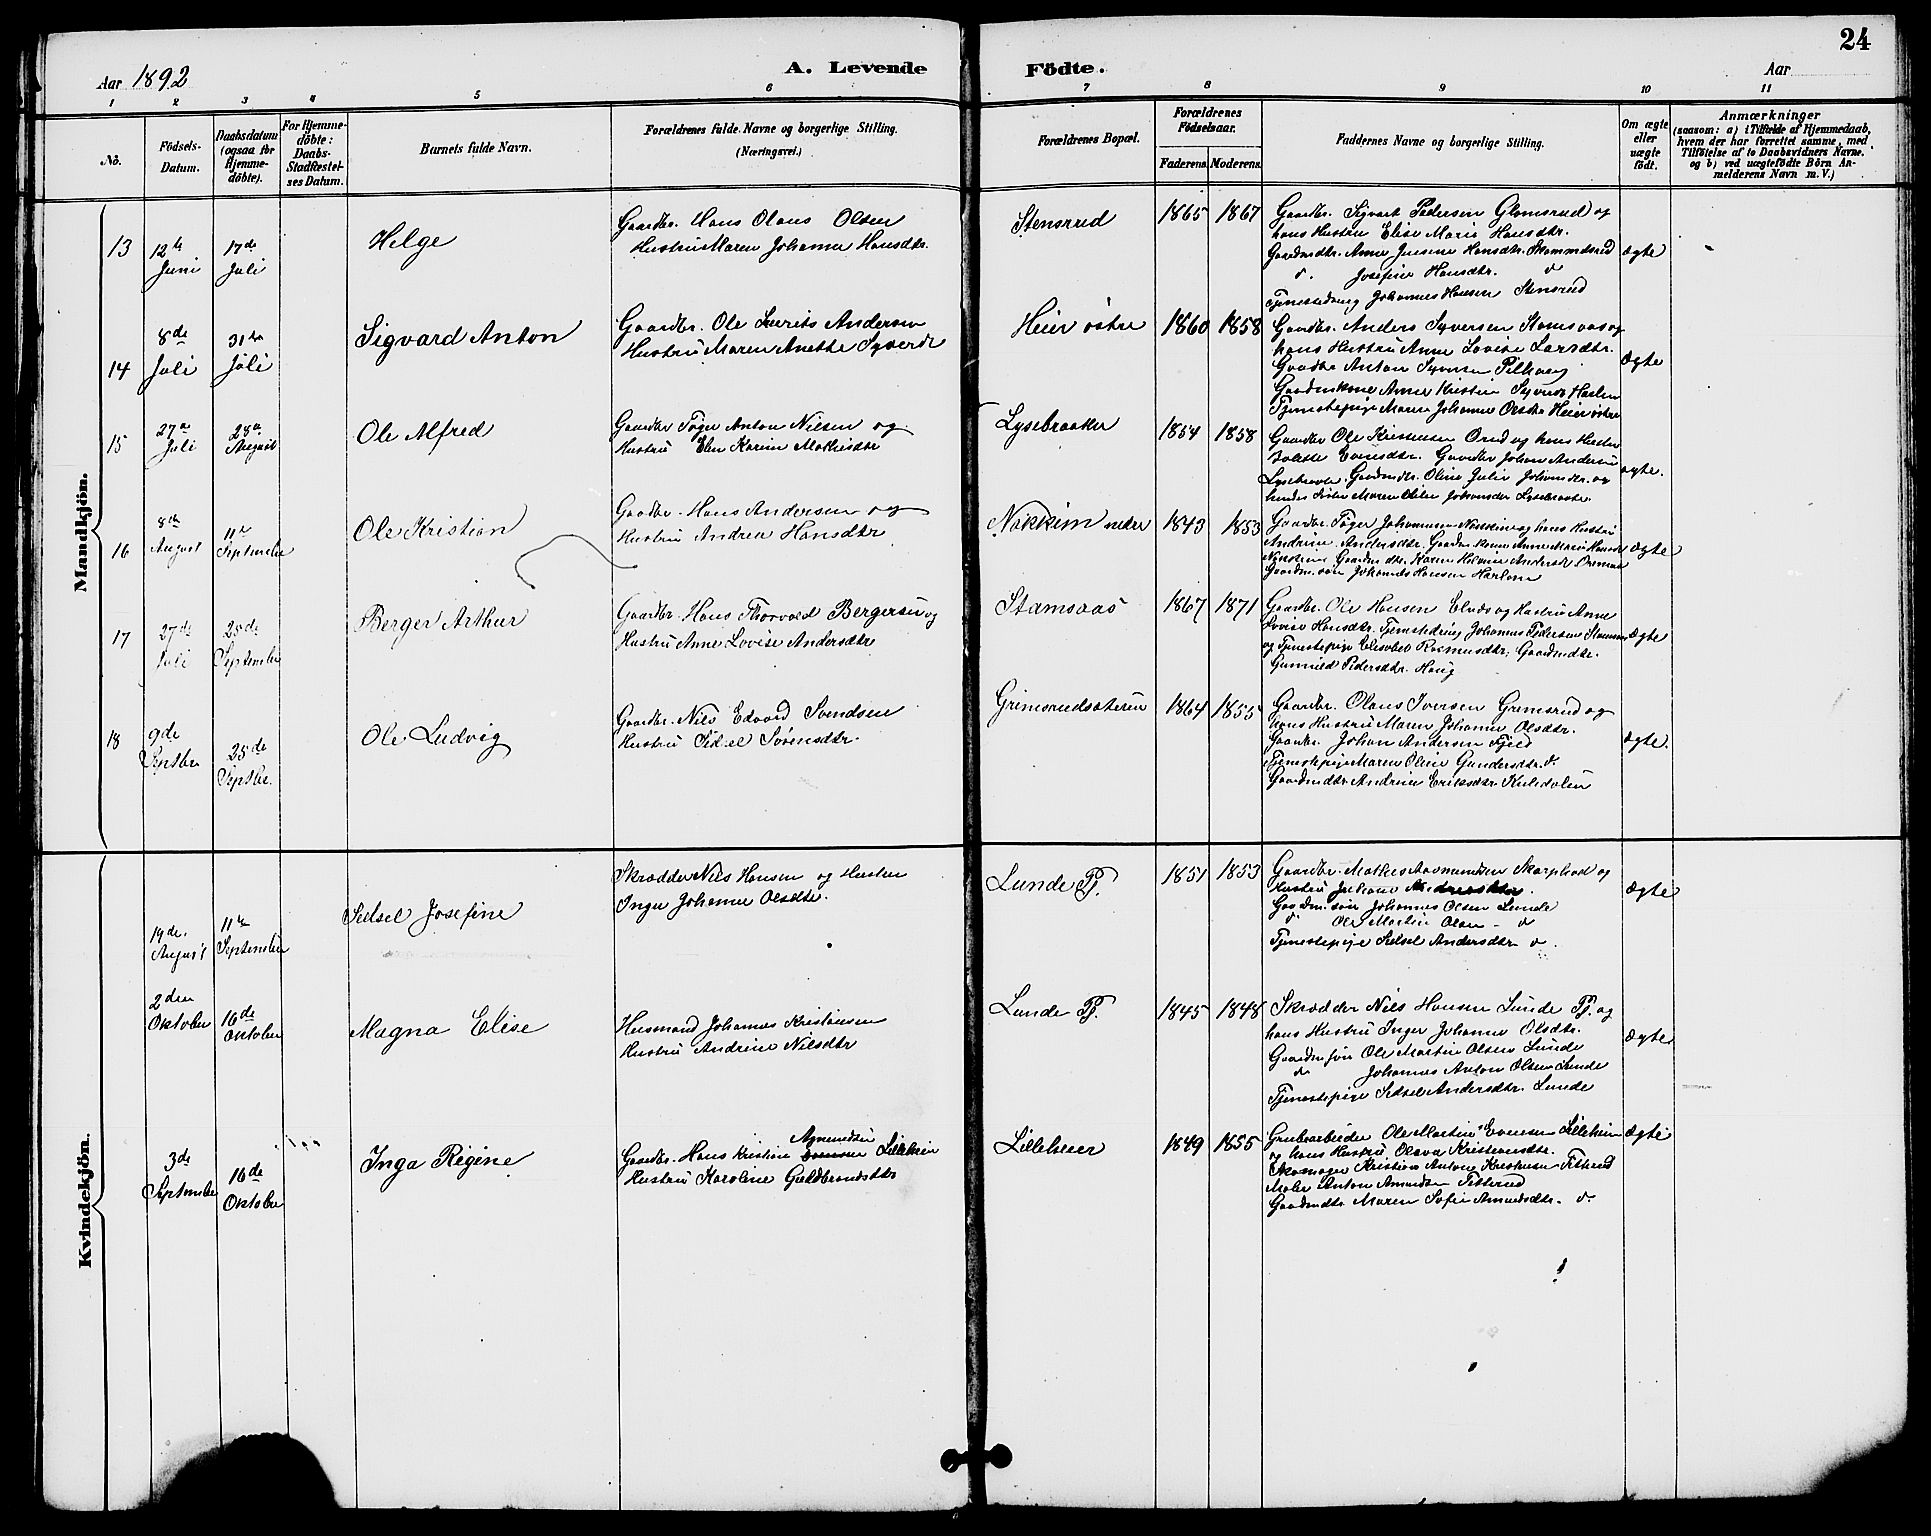 24
Aar 1892
A. Levende Födte.
Aar
1 2 3 4 5 6 7 8 9 10 11
No.
Födsels-Datum.
Daabsdatum (ogsaa for Hjemme-döbte).
For Hjemme-döbte: Daabs-Stadfæstel-ses Datum.
Barnets fulde Navn.
Forældrenes fulde Navne og borgerlige Stilling. (Næringsvei.)
Forældrenes Bopæl.
Forældrenes Födselsaar.
Faderens. Moderens.
Faddernes Navne og borgerlige Stilling.
Om ægte eller uægte født.
Anmærkninger
(saasom: a) i Tilfælde af Hjemmedaab,
hvem der har forrettet samme, med
Tilföielse af to Daabsvidners Navne.
og b) ved uægtefödte Börn An-
melderens Navn m. V.)
Mandkjön.
13
12te Juni
17de Juli
Helge
Gaardbr. Hans Olaus Olsen
Hustru Maren Johanne Hansdtr.
Stensrud
1865 1867
Gaardbr. Sigvart Pedersen Glomsrud og
hans Hustru Elise Marie Hansdtr.
Gaardmdtr. Anne Hansdtr.
d. Josefine Hansdtr. d
Tjenestedreng Johannes Hansen Stensrud
ægte
14
8de Juli
31te Juli
Sigvard Anton
Gaardbr. Ole Laurits Andersen
Hustru Maren Anette Syversdtr
Heier östre
1860 1858
Gaardbr. Anders Syversen Stamsaas og
hans Hustru Anne Lovise Larsdtr.
Gaardbr Anton Syversen
Gaardmkone Anne Kristine Syversdtr
Tjenestepige Maren Johanne Olsdtr Heier östre
ægte
15
27de Juli
28de August
Ole Alfred
Gaardbr Töger Anton Nilsen og
Hustru Elen Karine Mathisdtr
Lysebraaten
1854 1858
Gaardbr Ole Kristensen og hans Hustru
Evensdtr. Gaardbr Johan Andersen
Gaardmdtr. Oline Julie Johansdtr. og
hendes Söster Maren Johansdtr Lysebraaten
ægte.
16
8de August
11te September
Ole Kristian
Gaardbr. Hans Andersen og
Hustru Andrea Hansdtr
Nökkim nedre
1843 1853
Gaardbr. Töger Johannesen og hans Hustru
Andrine Andersdtr. Gaardm.konen Anne Marie
Gaardmdtr. Karen Andersdtr
Gaardm. sön Johannes Hansen
ægte
17
27de Juli
25de September
Berger Arthur
Gaardbr. Hans Thorvald Bergersen og
Hustru Anne Lovise Andersdtr
Stamsaas
1867 1871
Gaardbr. Ole Hansen og Hustru Anne
Lovise Hansdtr. Tjenestedreng Johannes Pedersen Stamsaas
og Tjenestepige Elisabet Rasmusdtr; Gaardmdtr.
Gunnild Pedersdtr. Haug
ægte
18
9de Septbr
25de Septbr.
Ole Ludvig
Gaardbr. Nils Edvard Svendsen
Hustru Sidsel Sörensdtr.
Grimsrudsæteren
1864 1855
Gaardbr. Olaus Iversen Grimsrud og
hans Hustru Maren Johanne Olsdtr.
Gaardbr. Johan Andersen Fjeld
Tjenestepige Maren Oline Gundersdtr. d.
Gaardmdtr. Andrine Eriksdtr. Kuledalen
ægte.
Kvindekjön.
19de August
11te September
Sidsel Josefine
Skrædder Nils Hansen og Hustru
Inger Johanne Olsdtr.
Lunde Pj.
1851 1853
Gaardbr. Mathis Aasmundsen og
Hustru Andersdtr.
Gaardm. sön Johannes Olsen Lunde
d. Ole Martin Olsen - d
Tjenestepige Sidsel Andersdtr d.
ægte
2den Oktober
16de Oktober
Magna Elise
Husmand Johannes Kristensen
Hustru Andrine Nilsdtr
Lunde Pj.
1845 1848
Skrædder Nils Hansen Lunde Pj. og
hans Hustru Inger Johanne Olsdtr.
Gaardm sön Ole Martin Olsen Lunde
d. Johannes Anton Olsen Lunde
Tjenestepige Sidsel Andersdtr. Lunde
ægte
3de September
16de Oktober
Inga Regine
Gaardbr. Hans Kristian Lilleheier
Hustru Karoline Guldbrandsdtr
Lilleheier
1849 1855
Grubearbeider Ole Martin Evensen Lilleheier
og hans Hustru Olava Kristensdtr.
Skomager Kristian Anton Kristensen
Maler Anton Amundsen
Gaardmdtr Maren Sofie Amundsdtr. d.
ægte